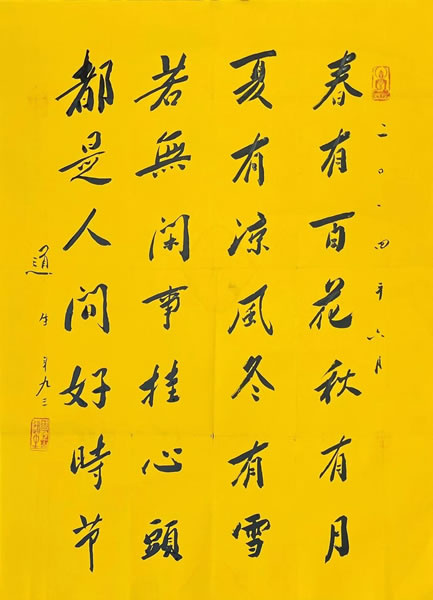 二〇一四年六月
春有百花秋有月
夏有涼風冬有雪
若無閑事挂心頭
都是人間好時节
道生年九三